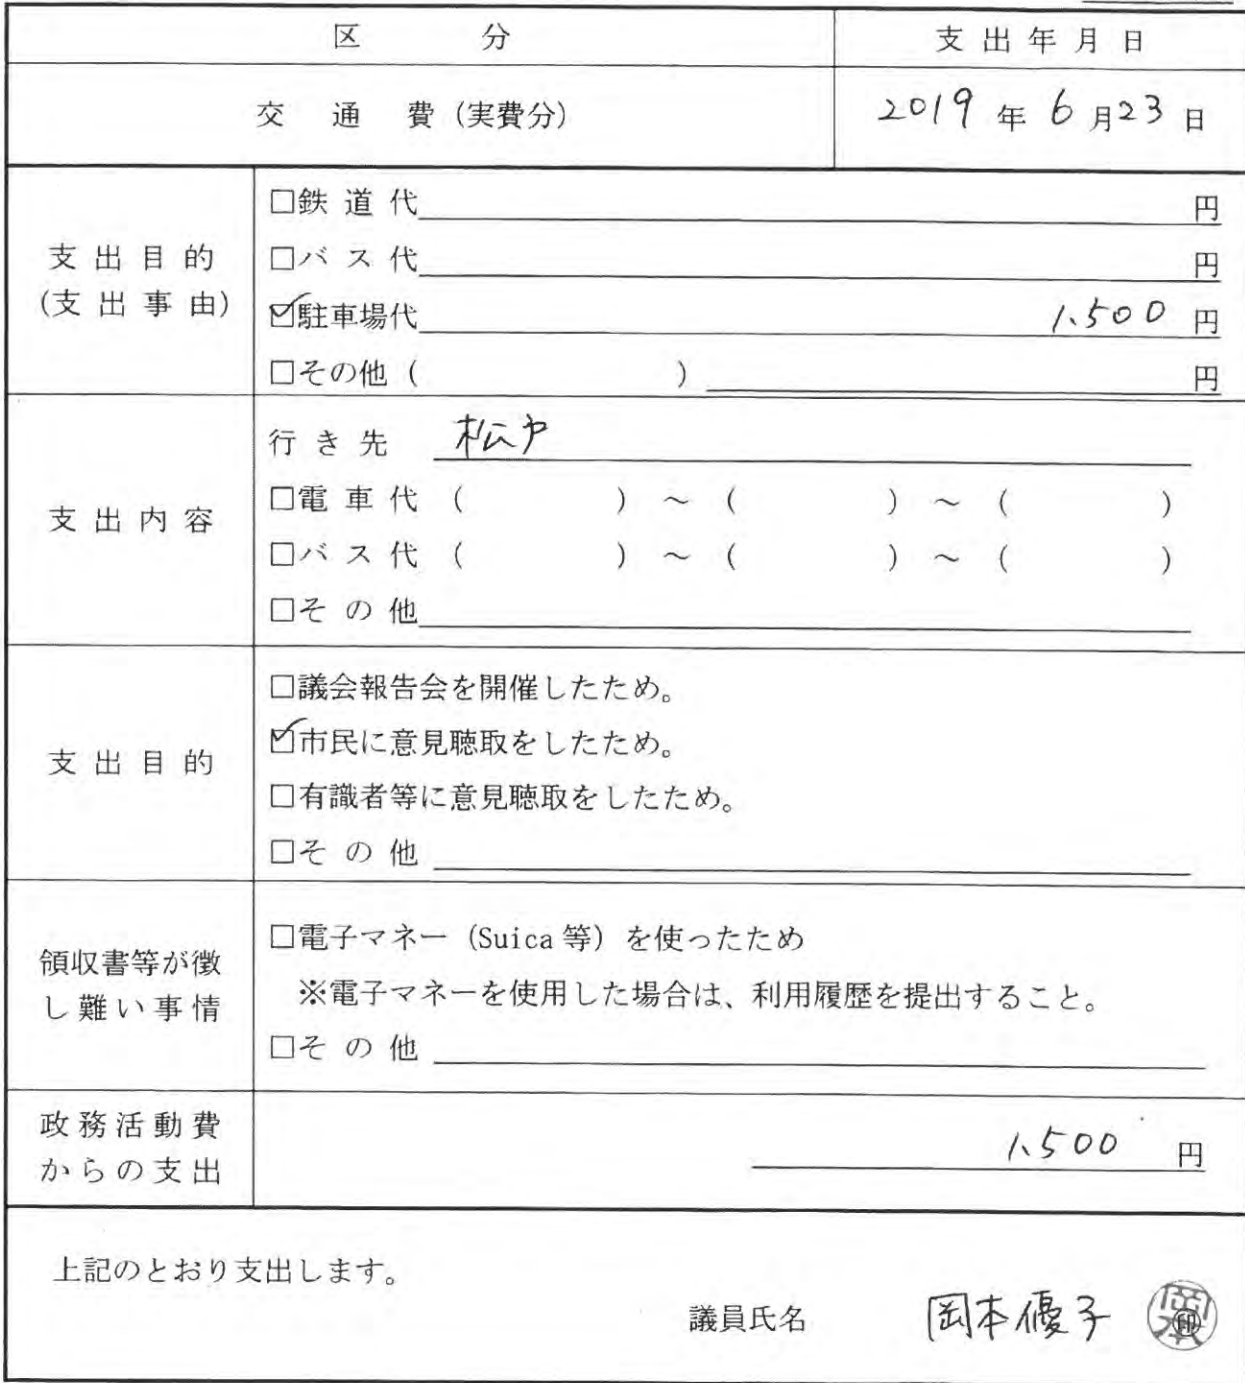 区 分 支出年月日
交 通 費 (実費分) 2019年6月23日
支出目的
(支出事由)
□鉄道代 円
□バス代 円
☑駐車場代 1,500円
□その他 ( ) 円
支出内容
行き先 松戸
□電車代 ( ) ~ ( ) ~ ( )
□バス代 ( ) ~ ( ) ~ ( )
□その他
支出目的
□議会報告会を開催したため。
☑市民に意見聴取をしたため。
□有識者等に意見聴取をしたため。
□その他
領収書等が徴
し難い事情
□電子マネー (Suica等) を使ったため
※電子マネーを使用した場合は、利用履歴を提出すること。
□その他
政務活動費
からの支出
1,500円
上記のとおり支出します。
議員氏名 岡本優子 ㊞
岡本